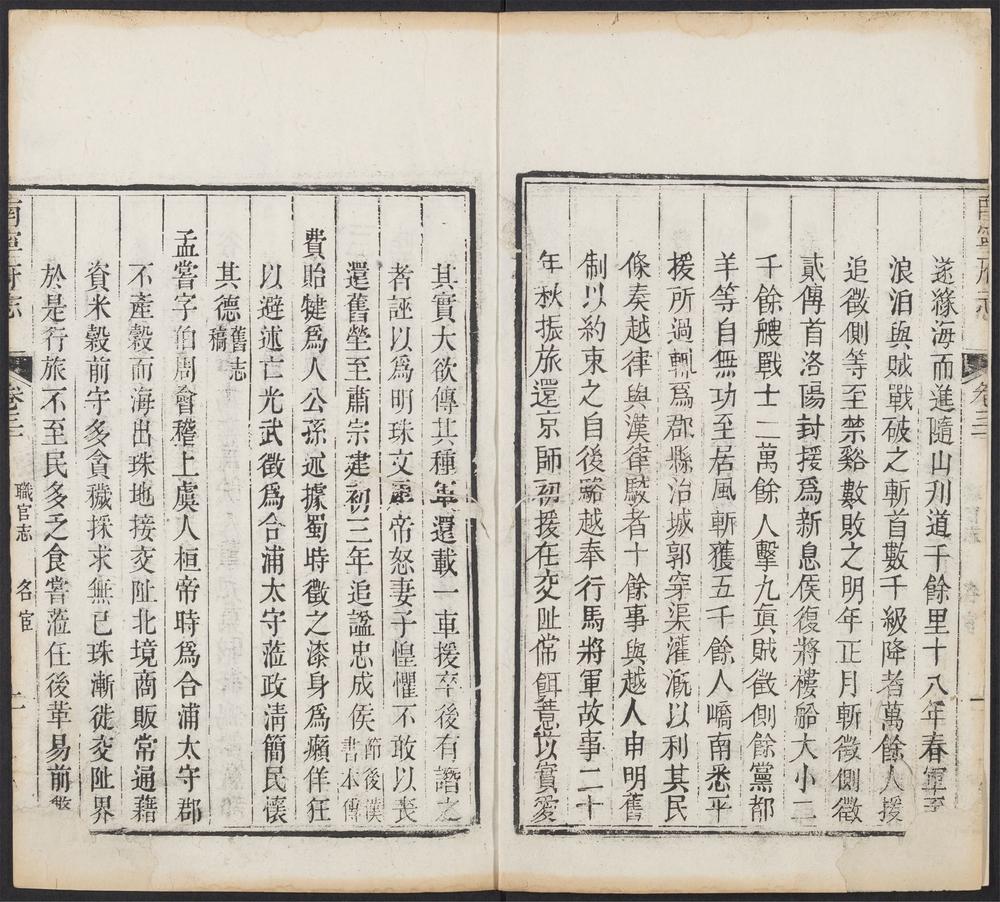 南寧府志 卷三 一
遂緣海而進隨山刋道千餘里十八年春軍至
浪泊與賊戰破之斬首數千級降者萬餘人援
追徵側等至禁谿數敗之明年正月斬徵側徵
貳傳首洛陽封援爲新息侯復將樓船大小二
千餘艘戰士二萬餘人擊九眞賊徵側餘黨都
羊等自無功至居風斬獲五千餘人嶠南悉平
援所過輙爲郡縣治城郭穿渠灌漑以利其民
條奏越律與漢律駮者十餘事與越人申明舊
制以約束之自後駱越奉行馬將軍故事二十
年秋振旅還京師初援在交趾常餌薏苡實愛
其實大欲傳其種年還載一車援卒後有譖之
者誣以爲明珠文犀帝怒妻子惶懼不敢以喪
還舊塋至肅宗建初三年追諡忠成侯節後漢書本傳
費貽犍爲人公孫述據蜀時徵之漆身爲癩佯狂
以避述亡光武徵爲合浦太守蒞政淸簡民懷
其德舊志稿
孟嘗字伯周會稽上虞人桓帝時爲合浦太守郡
不產穀而海出珠地接交阯北境商販常通藉
資米榖前守多貪穢採求無已珠漸徙交阯界
於是行旅不至民多乏食嘗蒞任後革易前弊
南寧府志 卷三 職官志 名宦 二